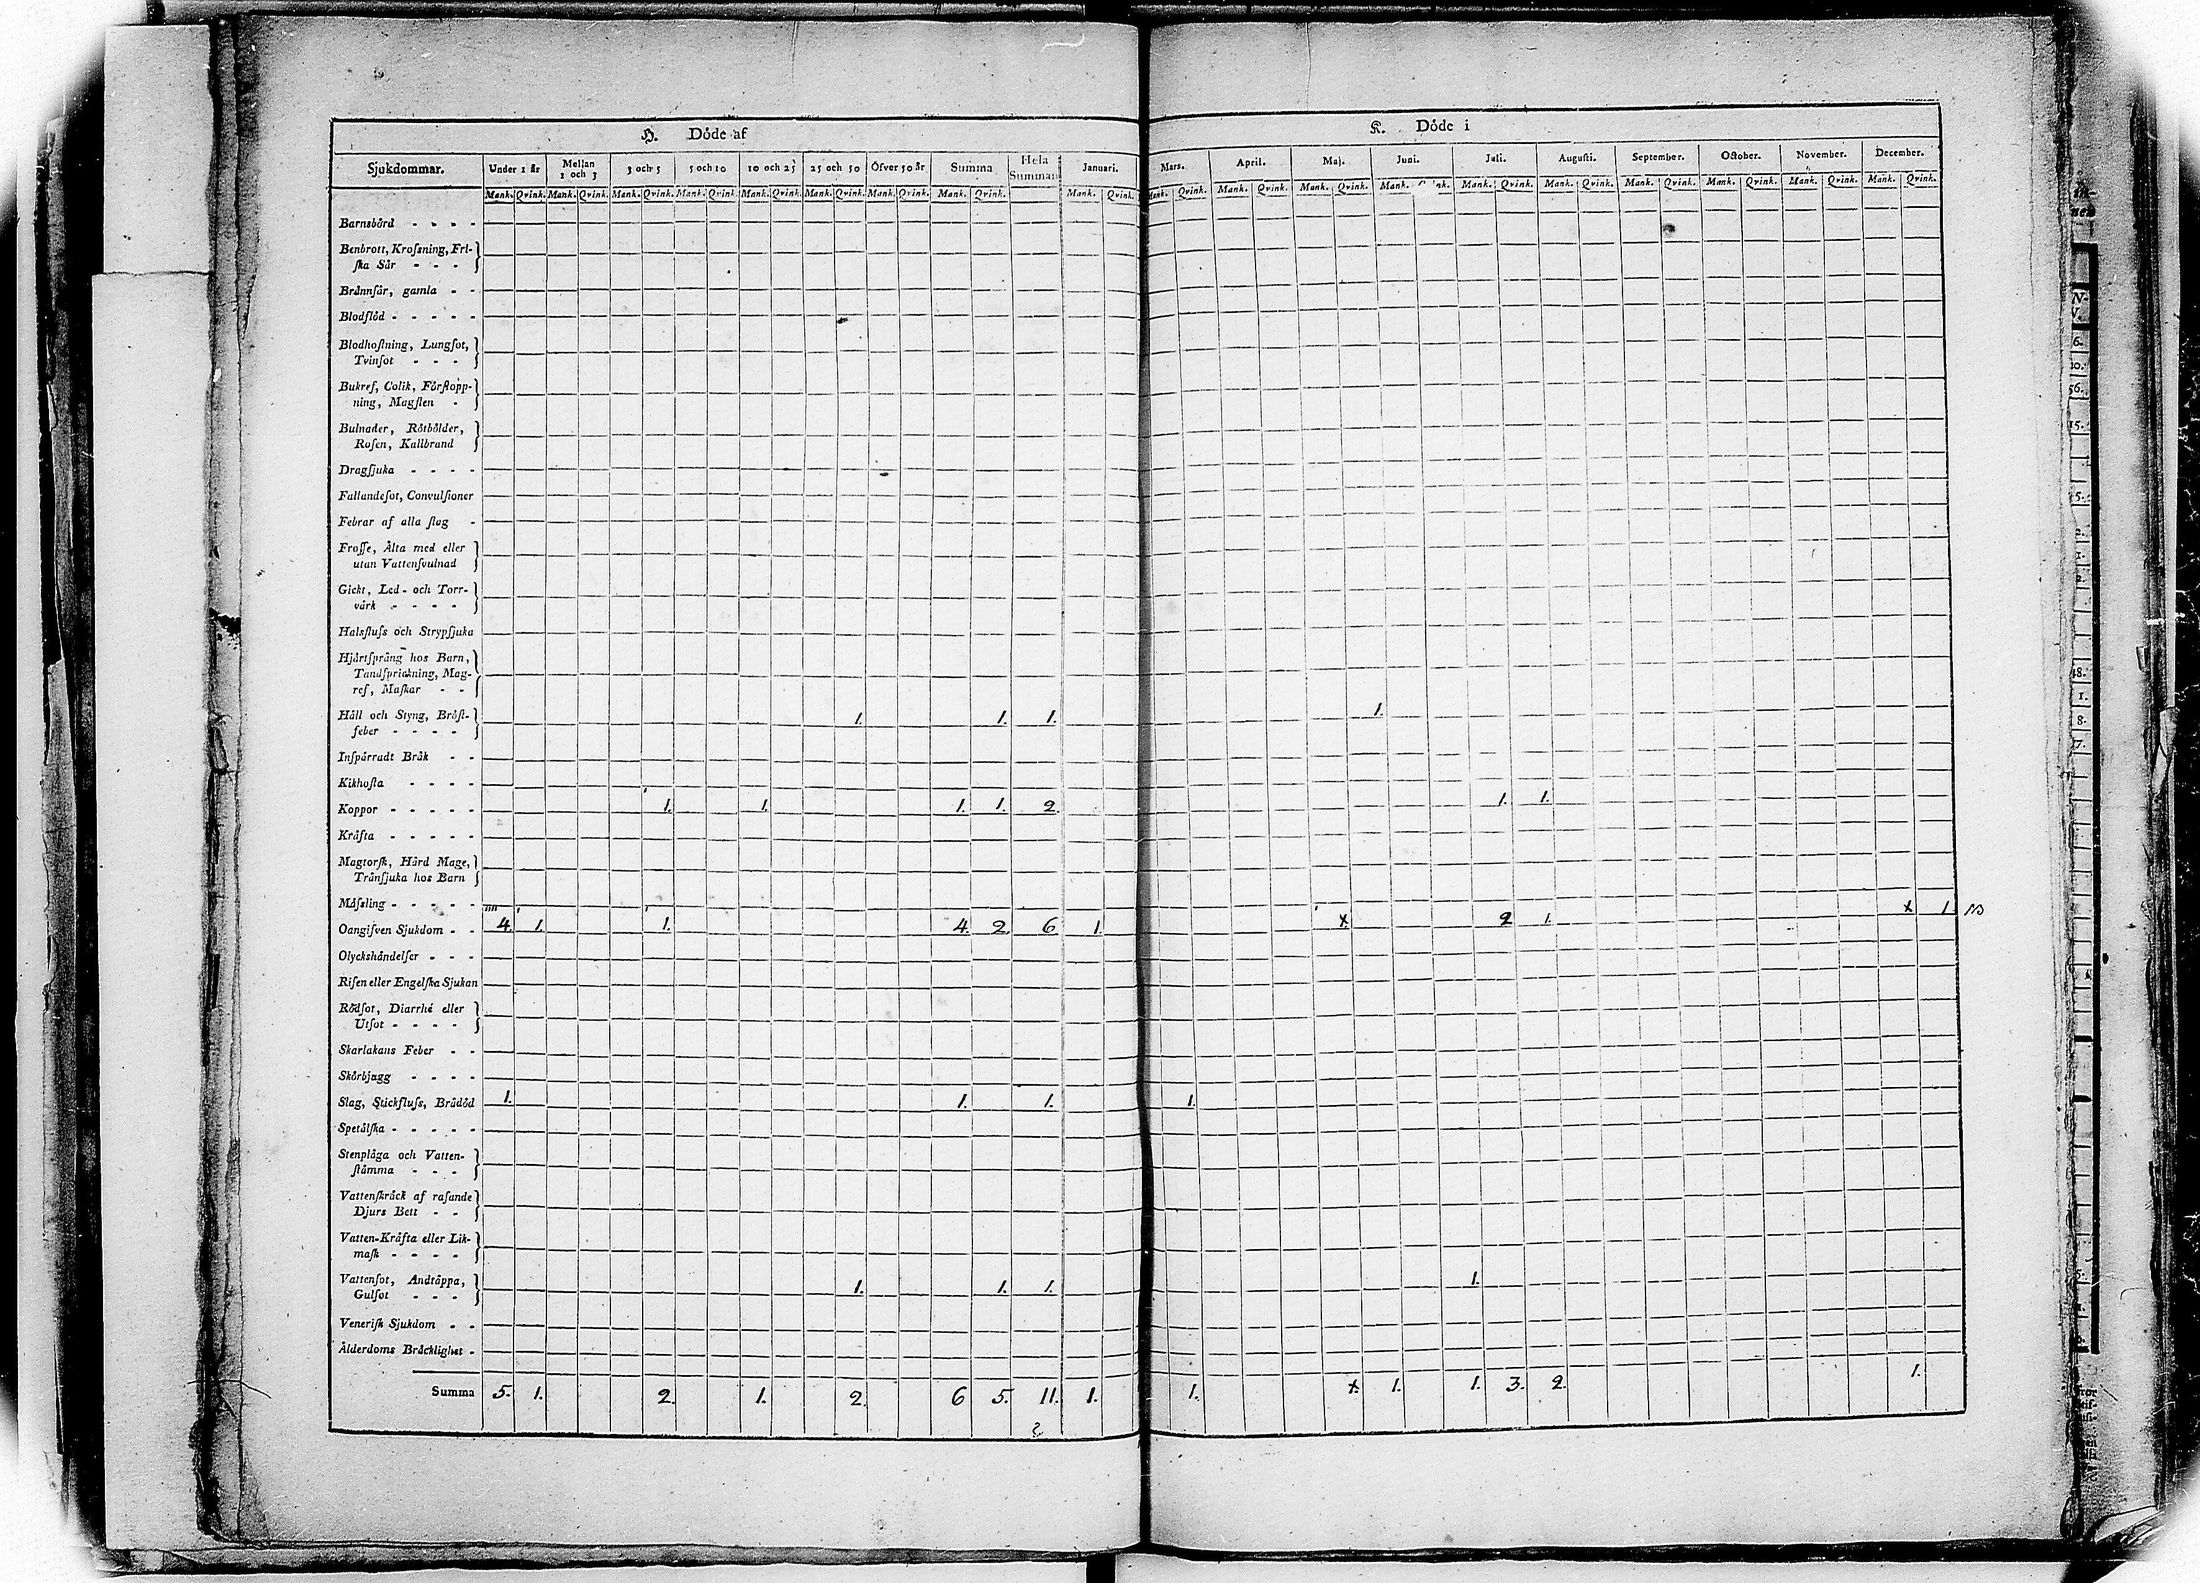 H. Döde af
K. Döde i
Sjukdommar. Under 1 år Mellan 1 och 3 3 och 5 5 och 10 10 och 25 25 och 50 Öfver 50 år Summa Hela Summan Januari. Mars. April. Maj. Juni. Juli. Augusti. September. October. November. December.
Mank. Qvink. Mank. Qvink. Mank. Qvink. Mank. Qvink. Mank. Qvink. Mank. Qvink. Mank. Qvink. Mank. Qvink. Mank. Qvink. Mank. Qvink. Mank. Qvink. Mank. Qvink. Mank. Qvink. Mank. Qvink. Mank. Qvink. Mank. Qvink. Mank. Qvink. Mank. Qvink. Mank. Qvink.
Barnsbörd - - - -
Benbrott, Krofsning, Fri-
ska Sår - - -
Brännsår, gamla - -
Blodflöd - - - - -
Blodhostning, Lungsot,
Tvinsot - - -
Bukref, Colik, Förstopp-
ning, Magsten -
Bulnader, Rötbölder,
Rosen, Kallbrand
Dragsjuka - - - -
Fallandesot, Convulsioner
Febrar af alla slag -
Frosse, Älta med eller
utan Vattensvulnad
Gickt, Led- och Torr-
värk - - - -
Halsfluss och Strypsjuka
Hjärtsprång hos Barn,
Tandsprickning, Mag-
ref, Maskar - -
Håll och Styng, Bröst- 1. 1. 1. 1.
feber - - - -
Inspärradt Bråk - -
Kikhosta - - - -
Koppor - - - - - 1. 1. 1. 1. 2. 1. 1.
Kräfta - - - - -
Magtorsk, Hård Mage,
Transjuka hos Barn
Mässling - - - - -
Oangifven Sjukdom - - 4. 1. 1. 4. 2. 6. 1. x. 2. 1. x 1.
Olyckshändelser - - -
Risen eller Engelska Sjukan
Rödsot, Diarrhé eller
Utsot - - - -
Skarlakans Feber - -
Skörbjugg - - - -
Slag, Stickfluss, Brådöd 1. 1. 1. 1.
Spetälska - - - - -
Stenplåga och Vatten-
stämma - - -
Vattenskräck af rasande
Djurs Bett - -
Vatten-Kräfta eller Lik-
mask - - - -
Vattensot, Andtäppa, 1. 1. 1. 1.
Gulsot - - -
Venerisk Sjukdom - -
Ålderdoms Bräcklighet -
Summa 5. 1. 2. 1. 2. 6 5. 11. 1. 1. x. 1. 1. 3. 2. 1.